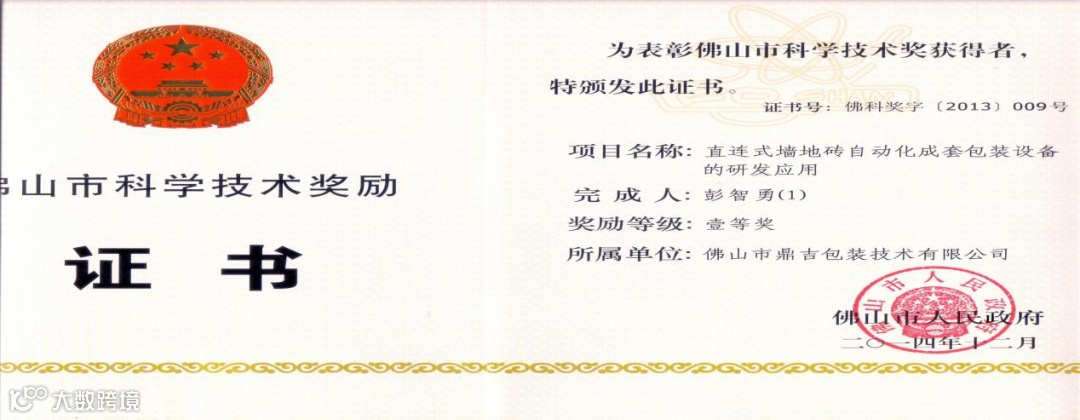 佛山市科学技术奖励
证书
为表彰佛山市科学技术奖获得者，
特颁发此证书。
证书号：佛科奖字〔2013〕009号
项目名称：直连式墙地砖自动化成套包装设备
的研发应用
完成人：彭智勇(1)
奖励等级：壹等奖
所属单位：佛山市鼎吉包装技术有限公司
佛山市人民政府
佛山市人民政府
二〇一四年十二月
大数跨境